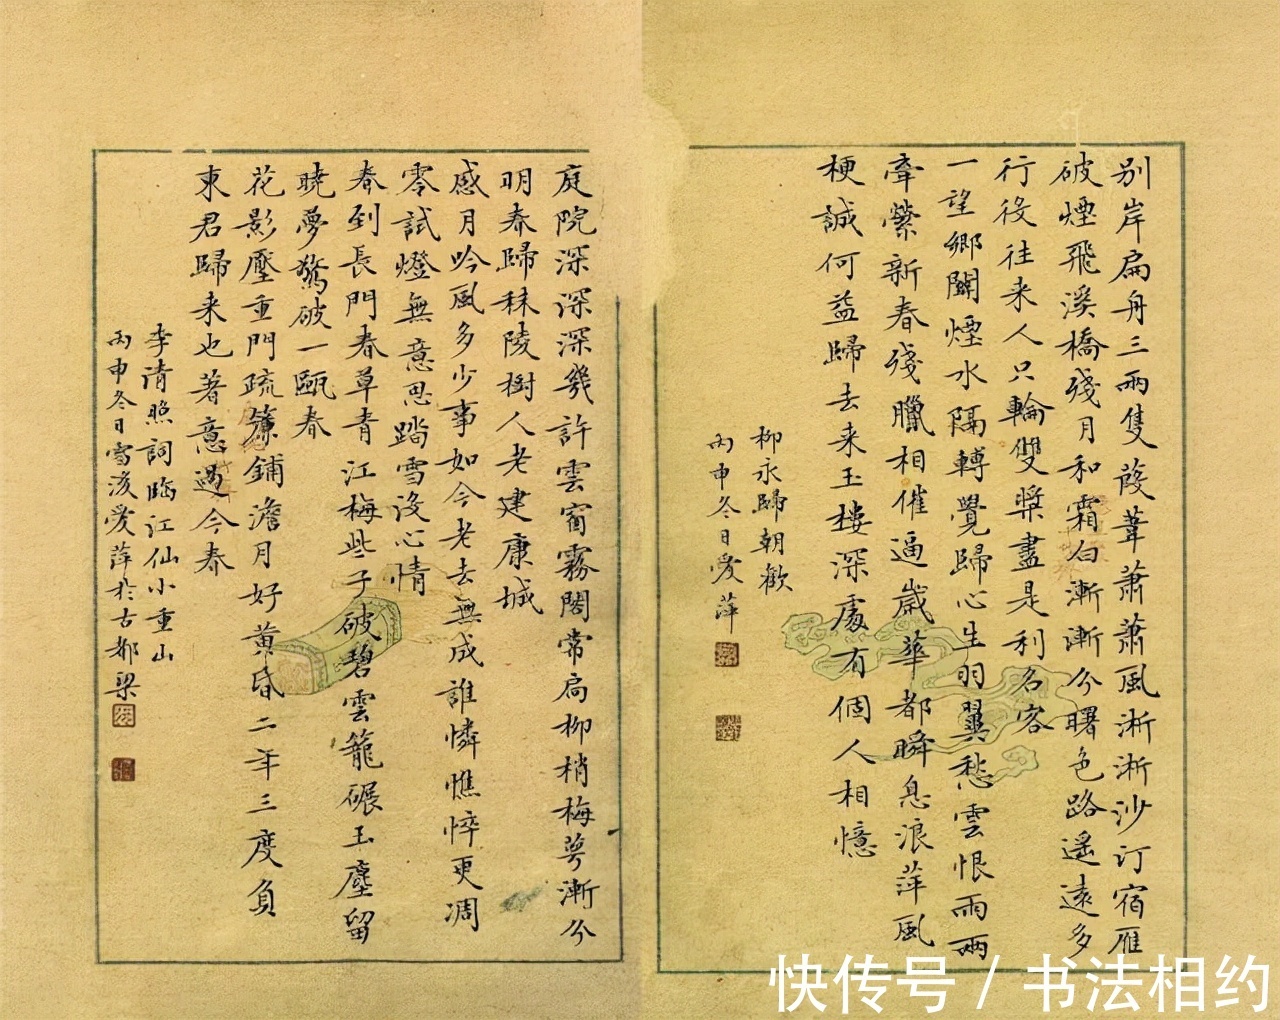 別岸扁舟三兩隻葭葦蕭蕭風淅淅沙汀宿雁
破煙飛溪橋殘月和霜白漸漸分曙色路遙遠多
行役往来人只輪雙槳盡是利名客
一望鄉關煙水隔轉覺歸心生羽翼愁雲恨雨兩
牽縈新春殘臘相催逼歲華都瞬息浪萍風
梗誠何益歸去来玉樓深處有個人相憶
柳永歸朝歡
丙申冬日愛萍
庭院深深深幾許雲窗霧閣常扃柳梢梅萼漸分
明春歸秣陵樹人老建康城
感月吟風多少事如今老去無成誰憐憔悴更凋
零試燈無意思踏雪沒心情
春到長門春草青江梅些子破碧雲籠碾玉塵留
曉夢驚破一甌春
花影壓重門疏簾鋪澹月好黃昏二年三度負
東君歸来也著意過今春
李清照詞臨江仙小重山
丙申冬日雪後愛萍於古都梁
快传号 / 书法相约